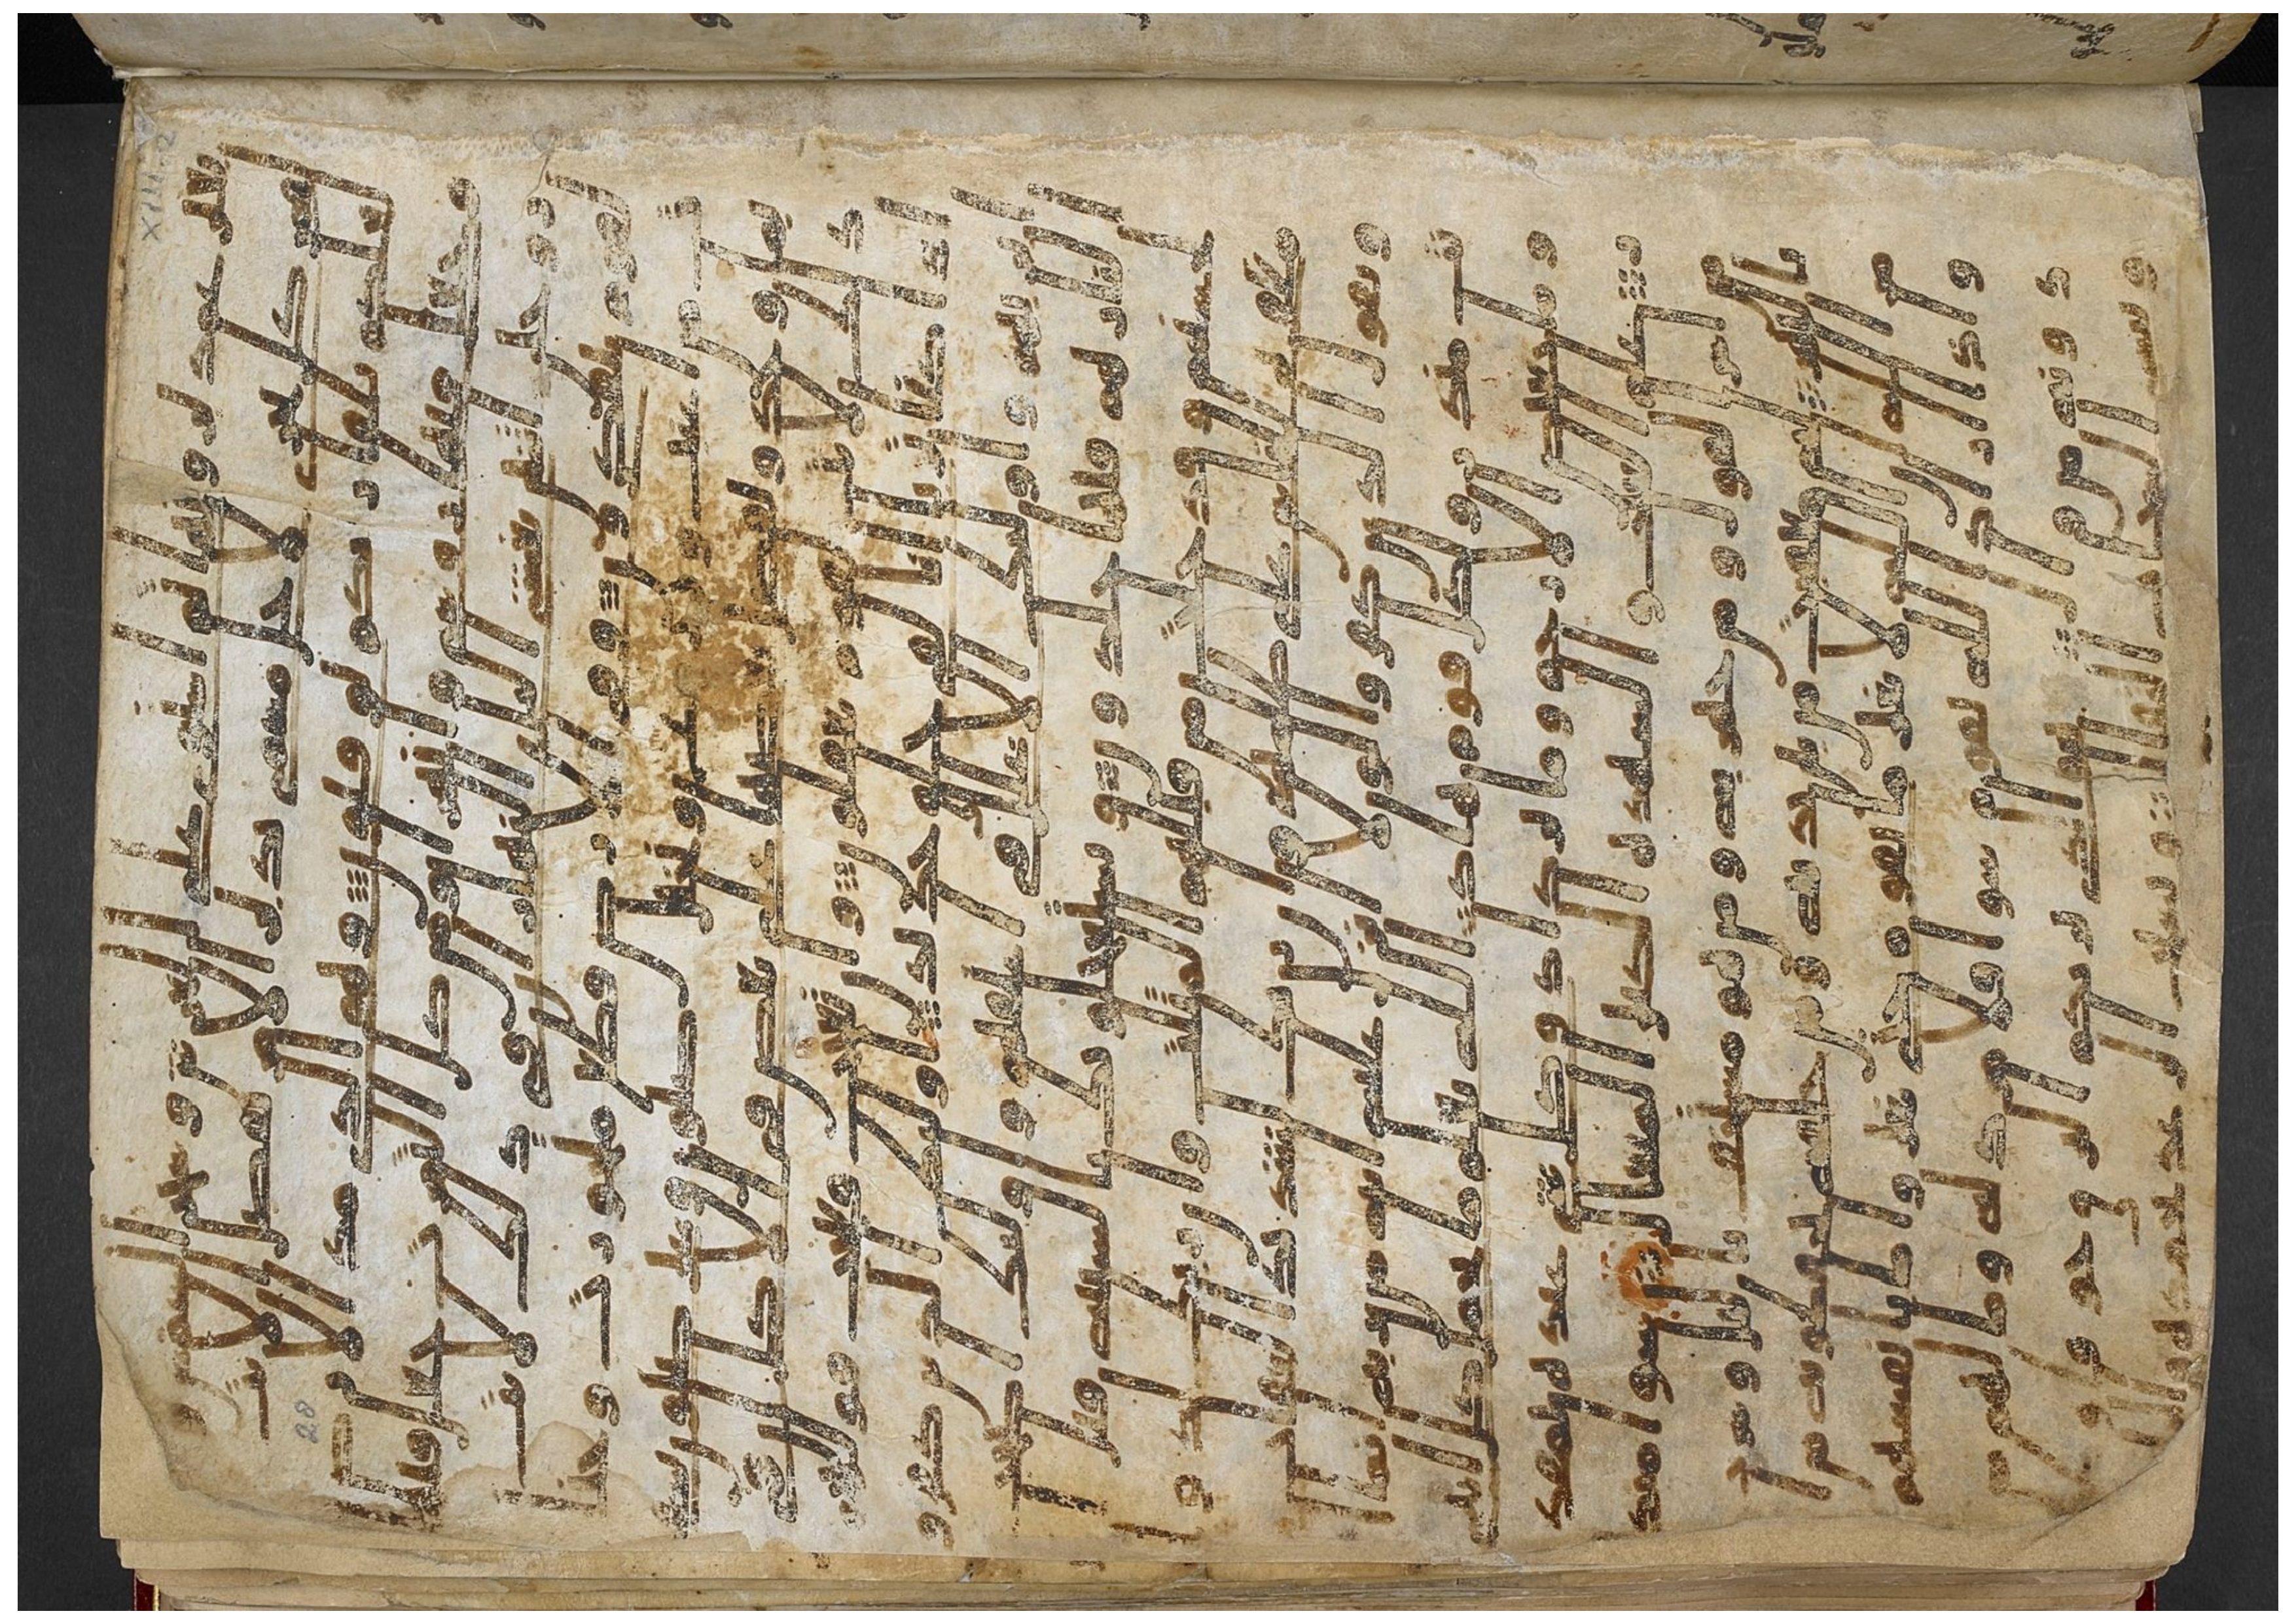 بغير عمد ترونها ثم استوى على العرش وسخر الشمس و
القمر كل يجرى لاجل مسمى يدبر الامر يفصل الايت
لعلكم بلقا ربكم توقنون وهو الذى مد الارض
وجعل فيها روسى وانهرا ومن كل الثمرت جعل فيها
زوجين اثنين يغشى اليل النهار ان فى ذلك لايت
لقوم يتفكرون وفى الارض قطع متجورت وجنت
من اعنب وزرع ونخيل صنون وغير صنون يسقى
بما وحد ونفضل بعضها على بعض فى الاكل ان فى
ذلك لايت لقوم يعقلون وان تعجب فعجب قولهم
اذا كنا تربا انا لفى خلق جديد اوليك الذين كفروا
بربهم واوليك الاغلل فى اعنقهم واوليك اصحب
النار هم فيها خلدون ويستعجلونك بالسيية قبل
الحسنة وقد خلت من قبلهم المثلت وان ربك لذو
مغفرة للناس على ظلمهم وان ربك لشديد العقاب
ويقول الذين كفروا لولا انزل عليه اية من ربه انما ا
نت منذر ولكل قوم هاد الله يعلم ما تحمل كل انثى
وما تغيض الارحام وما تزداد وكل شى عنده بمقدر
علم الغيب والشهدة الكبير المتعال سوا منكم
من اسر القول ومن جهر به ومن هو مستخف باليل وسر
ب بالنهار له معقبت من بين يديه ومن خلفه يحفظونه من ا
مر الله ان الله لا يغير ما بقوم حتى يغيروا ما بانفسهم
واذا اراد الله بقوم سوا فلا مرد له وما لهم من
دونه من وال هو الذى يريكم البرق خوفا وطمعا
وينشى السحب الثقال ويسبح الرعد بحمده
28